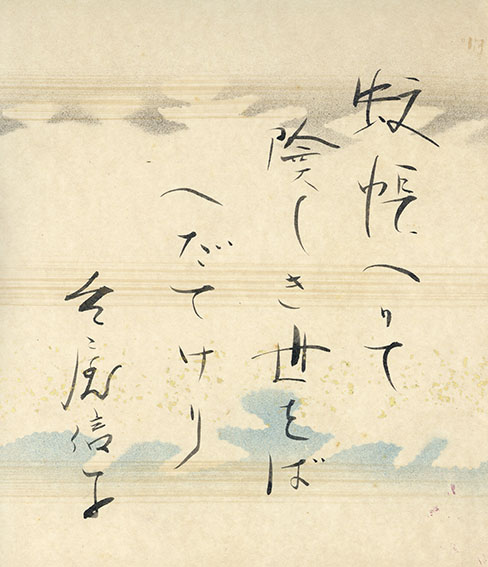 蚊帳つりて
險しき世をば
へだてけり
吉屋信子